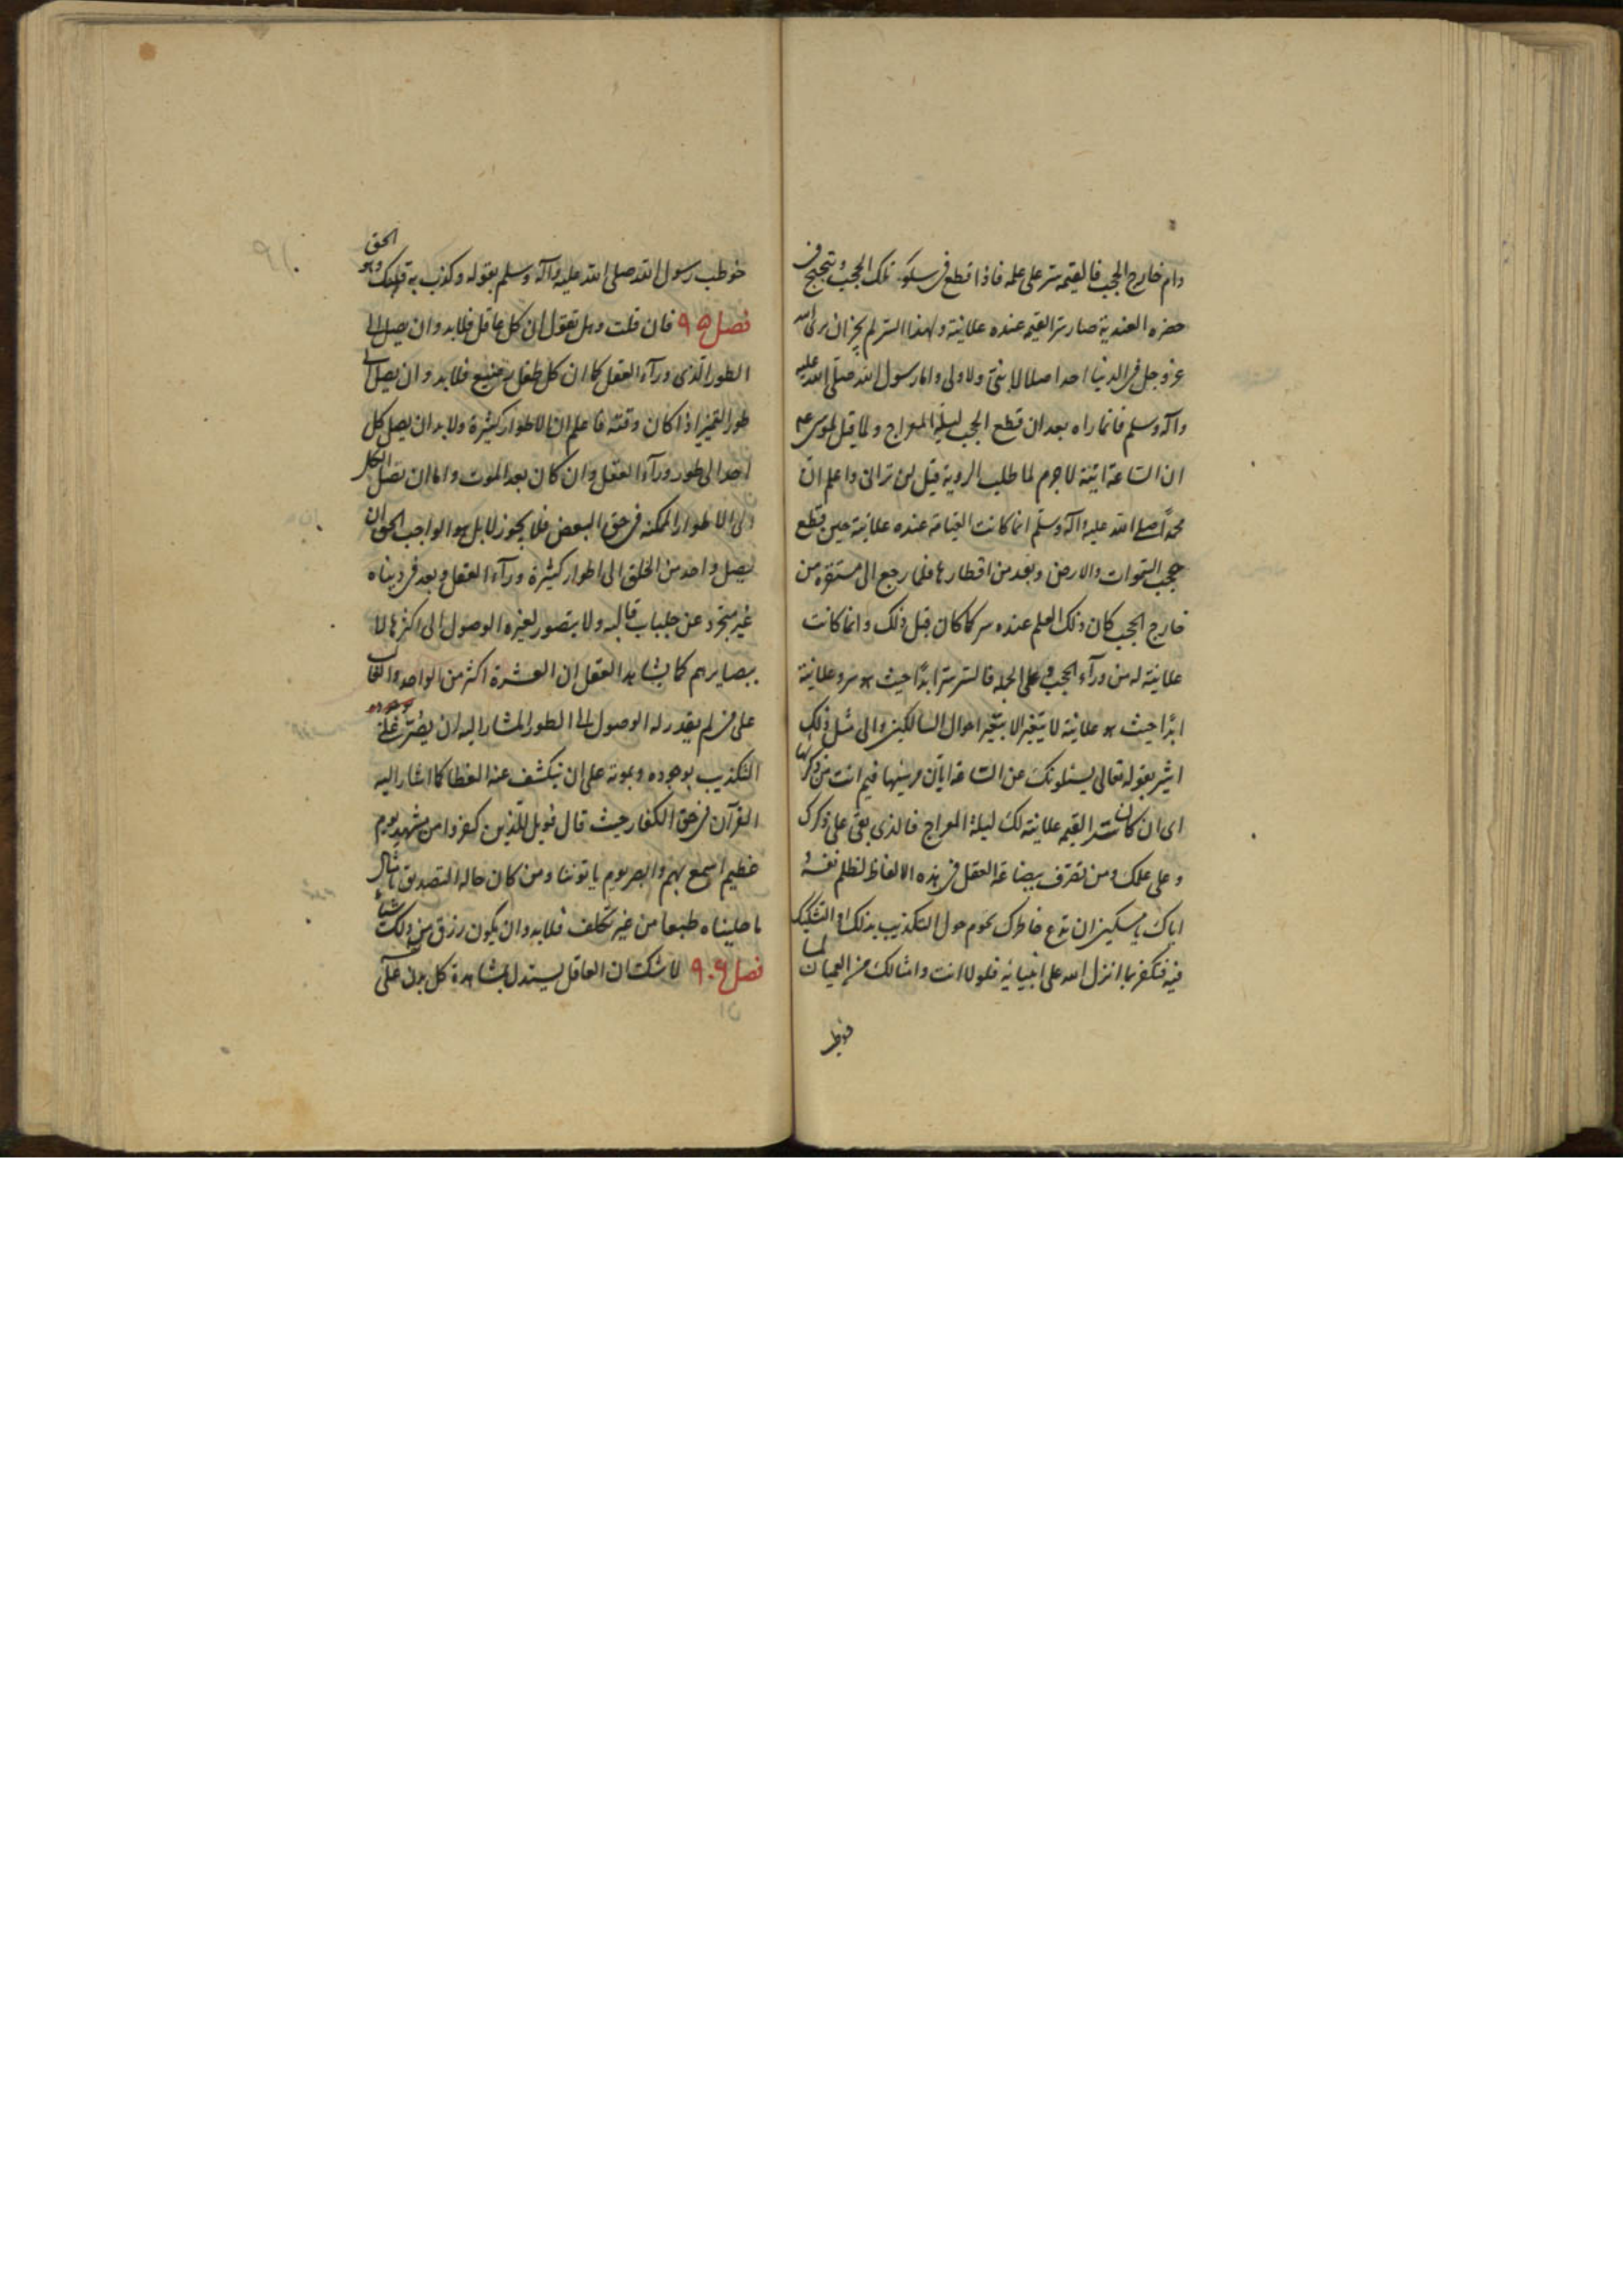 دام خارج الحجب فالقيمه سر على علمه فاذا قطع فى سلوكه تلك الحجب و تبحبح فى
حضره العندية صار سر القيمه عنده علانية و لهذا السر لم يجز ان يرى الله
عز و جل فى الدنيا احد اصلا لا نبى و لا ولى و اما رسول الله صلى الله عليه
و آله و سلم فانما راه بعد ان قطع الحجب ليلة المعراج و لما قيل لموسى ع
ان الساعة اتية لا جرم لما طلب الروية قيل لن ترانى و اعلم ان
محمدا صلى الله عليه و آله و سلم انما كانت القيامة عنده علانية حين قطع
حجب السموات و الارض و نفد من اقطارها فلما رجع الى مستقره من
خارج الحجب كان ذلك العلم عنده سر كما كان قبل ذلك و انما كانت
علانية له من ورآء الحجب و على الجمله فالسر سر ابدا حيث هو سر و علانية
ابدا حيث هو علانية لا يتغير الا بتغير احوال السالكين و الى مثل ذلك
اشير بقوله تعالى يسئلونك عن الساعة ايان مرسيها فيم انت من ذكريها
اى ان كان سر القيمه علانية لك ليلة المعراج فالذى بقى على ذكرك
و على علمك و من تصرف ببضاعة العقل فى هذه الالفاظ لظلم نفسه و
اياك يا مسكين ان تدع خاطرك يحوم حول التكذيب بذلك او التشكيك
فيه فتكفر بما انزل الله على انبيائه فلولا انت و امثالك من العميان لما
خوطب
خوطب رسول الله صلى الله عليه و آله و سلم بقوله و كذب به قومك و هو الحق
فصل ٩٥ فان قلت و هل تقول ان كل عاقل فلابد و ان يصل الى
الطور الذى ورآء العقل كما ان كل طفل رضيع فلابد و ان يصل الى
طور التمييز اذا كان وقته فاعلم ان الاطوار كثيرة و لا بد ان يصل كل
احد الى طور ورآء العقل و ان كان بعد الموت و اما ان يصل الكل
الى الاطوار الممكنه فى حق البعض فلا يجوز لا بل هو الواجب الحق ان
يصل واحد من الخلق الى اطوار كثيرة ورآء العقل و بعد فى دنياه
غير متجرد عن جلباب قالبه و لا يتصور لغيره الوصول الى اكثرها لا
ببصايرهم كما يشاهد العقل ان العشرة اكثر من الواحد و الغالب
على من لم يقدر له الوصول الى الطور المشار اليه ان يصر على
التكذيب بوجوده و يموت على ان ينكشف عنه الغطا كما اشار اليه
القرآن فى حق الكفار حيث قال فويل للذين كفروا من مشهد يوم
عظيم اسمع بهم و ابصر يوم ياتوننا و من كان حاله التصديق بامثال
ما حكيناه طبعا من غير تكلف فلابد و ان يكون رزق من ذلك شيئا
فصل ٩٠٦ لا شك ان العاقل يستدل بمشاهدة كل بدن على